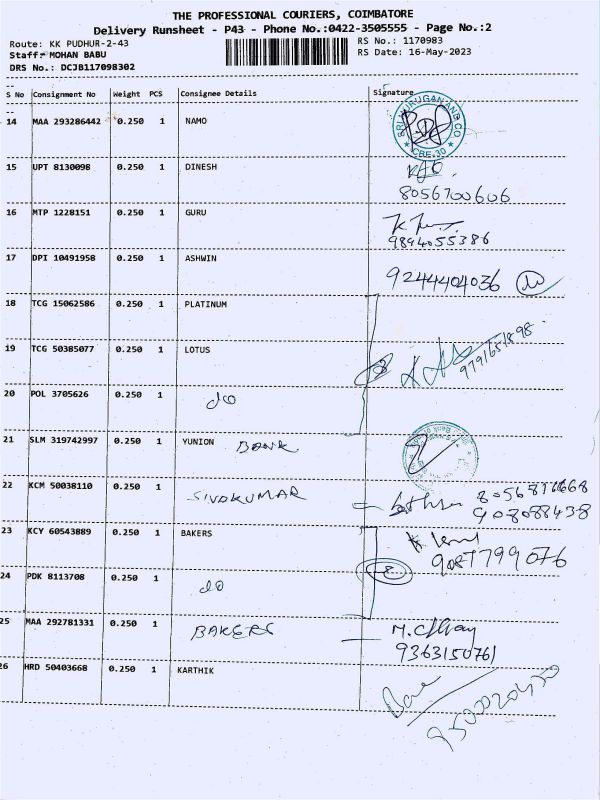 THE PROFESSIONAL COURIERS, COIMBATORE
Delivery Runsheet - P43 - Phone No.:0422-3505555 - Page No.:2
Route: KK PUDHUR-2-43 RS No.: 1170983
Staff: MOHAN BABU RS Date: 16-May-2023
DRS No.: DCJB117098302
S No Consignment No Weight PCS Consignee Details Signature
14 MAA 293286442 0.250 1 NAMO
SRI MURUGAN AND CO
CBE-30
15 UPT 8130098 0.250 1 DINESH
8056700606
16 MTP 1228151 0.250 1 GURU
9894055386
17 DPI 10491958 0.250 1 ASHWIN
9244404036
18 TCG 15062586 0.250 1 PLATINUM
19 TCG 50385077 0.250 1 LOTUS
9791651898
20 POL 3705626 0.250 1 do
21 SLM 319742997 0.250 1 YUNION BANK
22 KCM 50038110 0.250 1 SIVAKUMAR
23 KCY 60543889 0.250 1 BAKERS
24 PDK 8113708 0.250 1 do
25 MAA 292781331 0.250 1 BAKERS
9363150761
26 HRD 50403668 0.250 1 KARTHIK